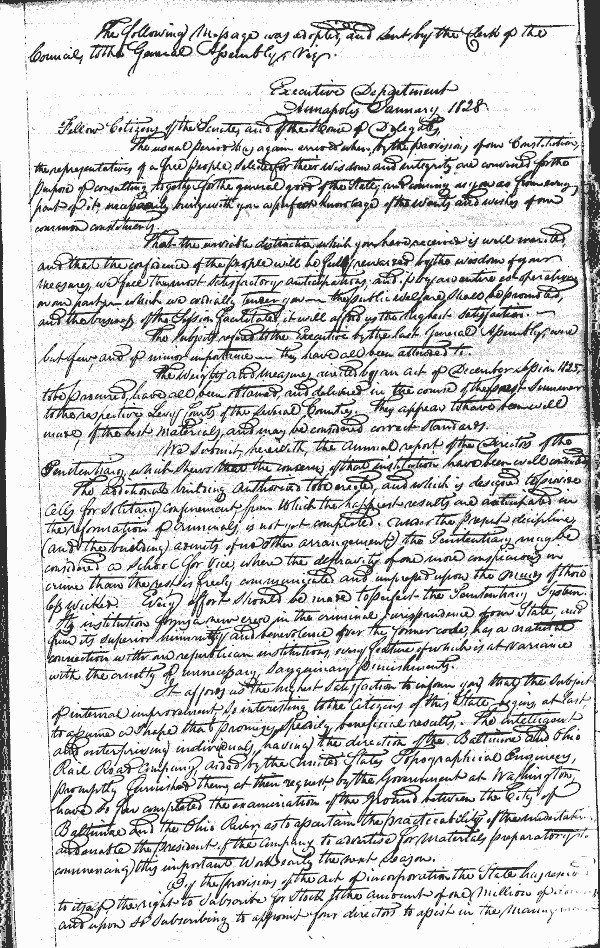 The following Message was adopted, and sent by the Clerk of the
Council, to the General Assembly, Viz.
Executive Department
Annapolis January 1828
Fellow Citizens of the Senate, and of the House of Delegates,
The usual period has again arrived when, by the provisions of our Constitution,
the representatives of a free people, selected for their wisdom and integrity are convened for the
purpose of consulting together for the general good of the State, and coming as you do from every
part of it, necessarily bring with you a perfect knowledge of the wants and wishes of our
common constituents.
That the enviable distinction which you have received is well merited,
and that the confidence of the people will be fully realized by the wisdom of your
measures, we feel the most satisfactory anticipations, and if by an entire cooperation
on our part in which we cordially tender you the public welfare shall be promoted,
and the business of the Session facilitated it will afford us the highest satisfaction.
The subjects referred to the Executive by the last General Assembly, were
but few, and of minor importance they have all been attended to.
The Weights and Measures, directed by an act of December Session 1825,
to be procured, have all been obtained, and delivered in the course of the past Summer
to the respective Levy Courts of the several Counties. They appear to have been well
made, of the best materials, and may be considered correct standards.
We submit, herewith, the annual report of the Directors of the
Penitentiary, which shews that the concerns of that institution have been well conducted
The additional building authorized to be erected, and which is designed to provide
Cells for Solitary Confinement from which the happiest results are anticipated in
the reformation of criminals, is not yet completed. Under the present discipline,
(and the building admits of no other arrangement) the Penitentiary may be
considered a School for Vice, where the depravity of one more conspicuous in
crime than the rest is freely communicated and impressed upon the minds of those
less wicked. Every effort should be made to perfect the Penitentiary System.
Its institution forms a new era in the criminal jurisprudence of our State, and
from its superior humanity and benevolence over the former code, has a natural
connection with our republican institutions, every feature of which is at variance
with the cruelty of unnecessary Sanguinary Punishments.
It affords us the highest Satisfaction to inform you that the Subject
of internal improvement, so interesting to the Citizens of this State, begins at last
to assume a shape that promises speedily beneficial results. The intelligent
and enterprising individuals, having the direction of the Baltimore and Ohio
Rail Road Company, aided by the United States Topographical Engineers,
promptly furnished them at their request by the Government at Washington,
have so far completed the examination of the Ground between the City of
Baltimore and the Ohio River, as to ascertain the practicability of the undertaking
and enable the president of the Company to advertise for Materials preparatory to
commencing this important Work early the next season.
By the provisions of the act of incorporation the State has reserved
to itself the right to Subscribe for Stock to the amount of one Million of
and upon so subscribing to appoint four directors to assist in the Management